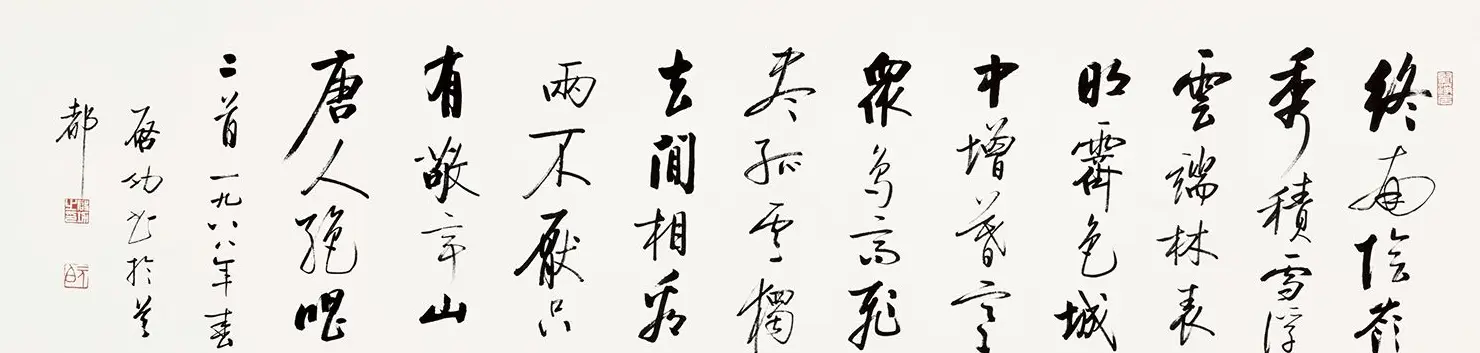 終南陰嶺
秀積雪浮
雲端林表
明霽色城
中增暮寒
眾鳥高飛
盡孤雲獨
去閒相看
兩不厭只
有敬亭山
唐人絕唱
二首一九八八年春
啓功書於首
都